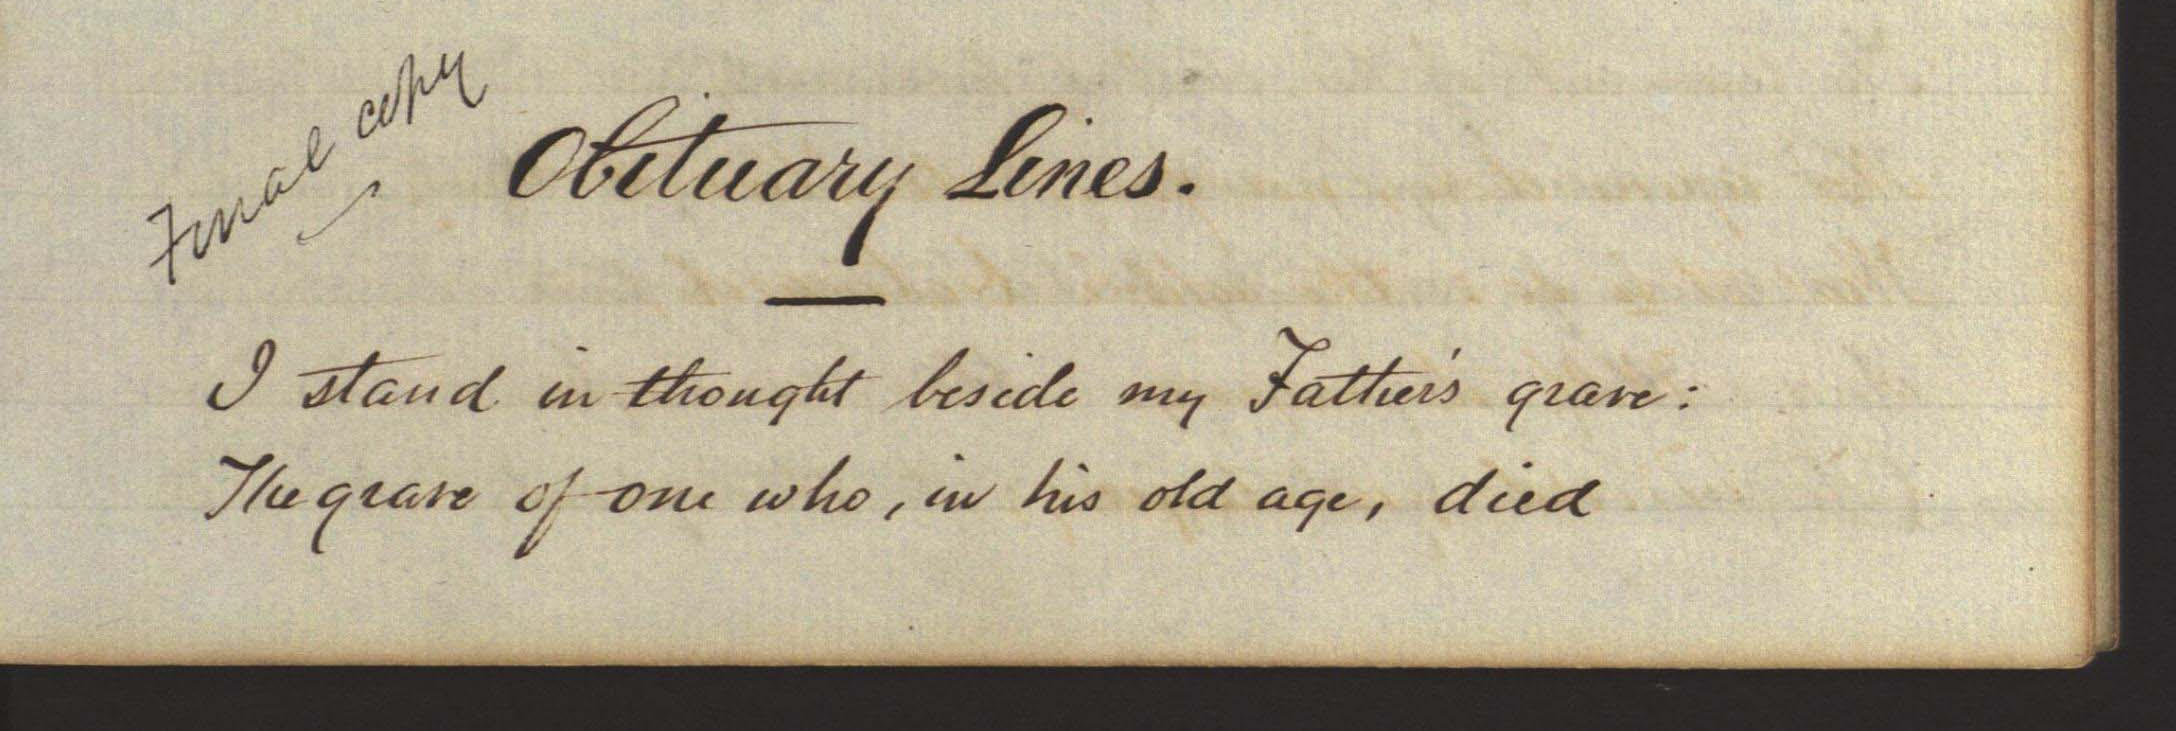 Final copy
Obituary Lines.
I stand in thought beside my Father's grave:
The grave of one who, in his old age, died